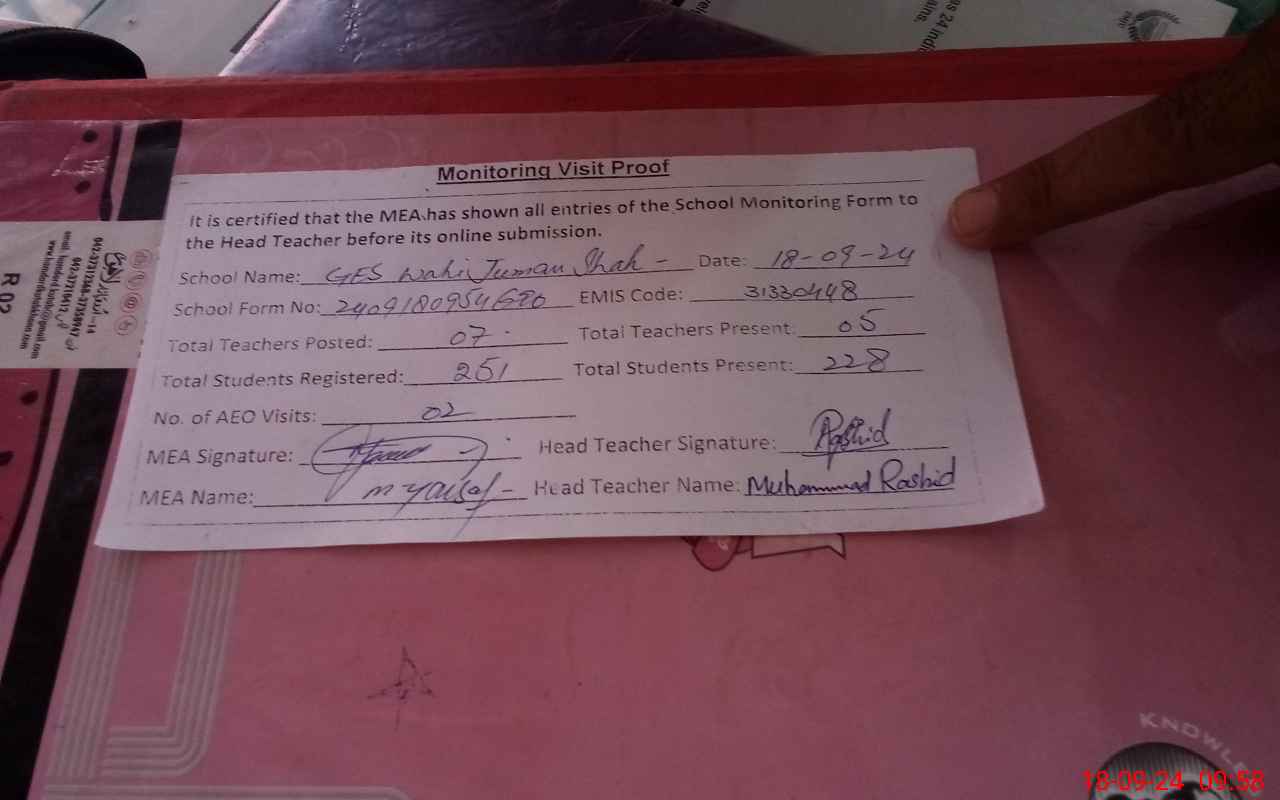 es 24 indi
ains.
Monitoring Visit Proof
It is certified that the MEA has shown all entries of the School Monitoring Form to
the Head Teacher before its online submission.
School Name: GES Wahi Juman Shah - Date: 18-09-24
School Form No: 2409180954690 EMIS Code: 31330448
Total Teachers Posted: 07 Total Teachers Present: 05
Total Students Registered: 251 Total Students Present: 228
No. of AEO Visits: 02
MEA Signature: Head Teacher Signature: Rashid
MEA Name: Head Teacher Name: Muhammad Rashid
R 02
KNOWLE
18-09-24 09:58